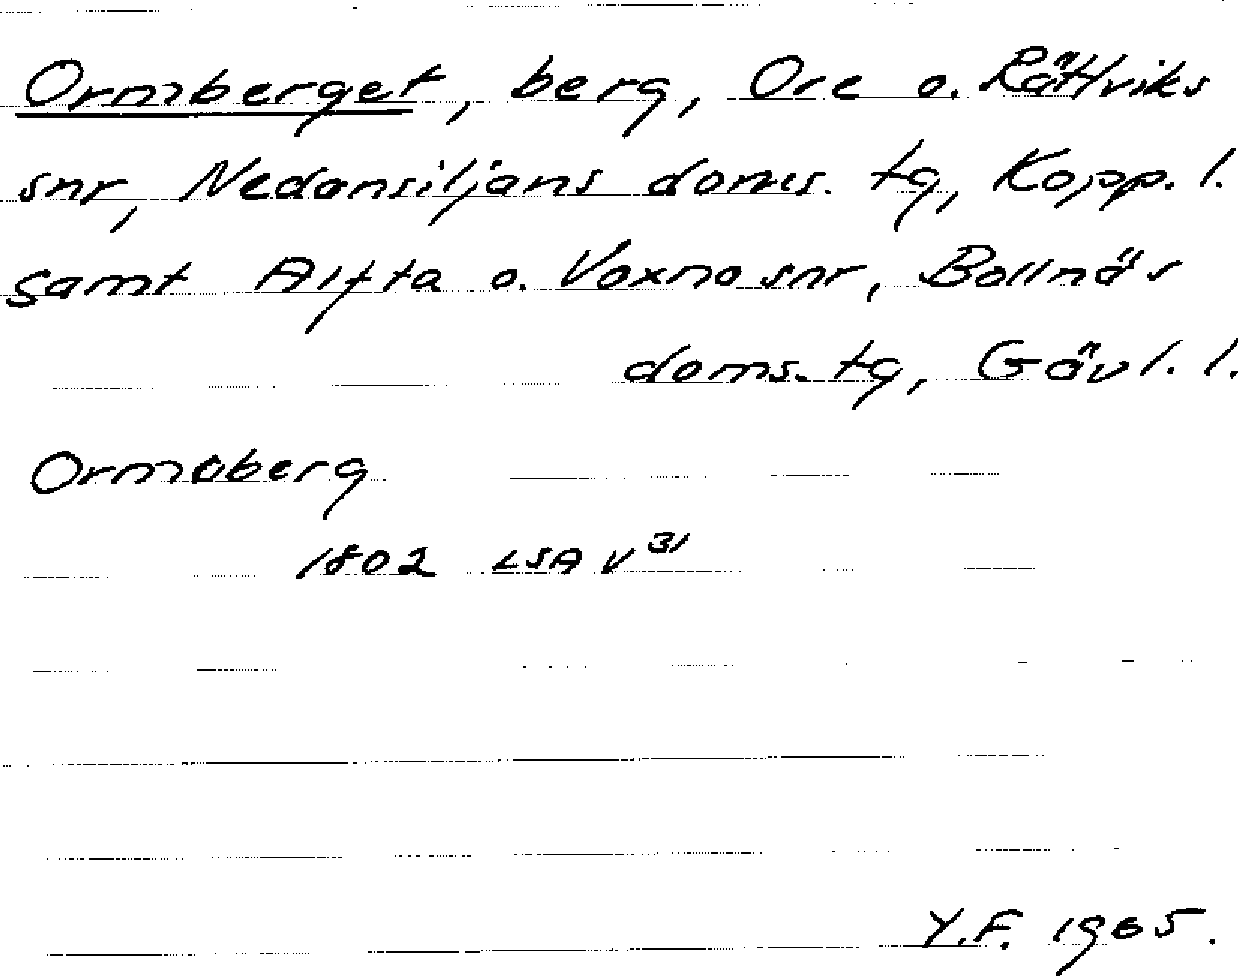 Ormberget, berg, Ore o. Rättviks
snr, Nedansiljans doms. tg, Kopp. l.
samt Alfta o. Voxna snr, Bollnäs
doms. tg, Gävl. l.
Ormaberg
1802 LSA V 31
Y.F. 1965.